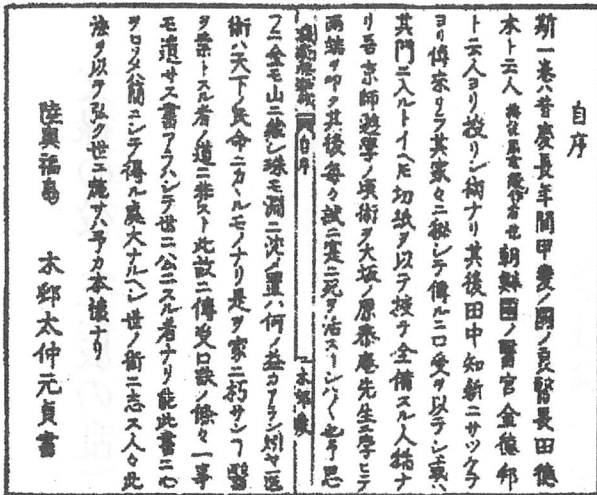 自序
斯一巻ハ昔慶長年間甲斐ノ國ノ良醫長田徳
本ト云人朝鮮國ノ醫官金徳邦
ト云人ヨリ授リシ術ナリ其後田中知新ニサツケラ
ヨリ傳来リヲ其家々ニ秘シテ傳ルニ口受ヲ以テシ
其門ニ入ルトイヘトモ切紙ヲ以テ授テ全備スル人稀ナ
リ吾京師遊學ノ頃術ヲ大坂ノ原泰庵先生ニ學ヒテ
両端ヲ叩ク其後毎々試ニ寔ニ死ヲ活スー
自序
木邨
フニ金モ山ニ蔵シ珠モ淵ニ沈ノ置ハ何ノ益カアラン
術ハ天下ノ民命ニカヽルモノナリ是ヲ家ニ朽サシ
ヲ業トスル者ノ道ニ非スト此故ニ傳受口訣ノ條々一事
モ遺サス書アラハシテ世ニ公ニスル者ナリ能此書ニ心
ヲヒソメハ簡ニシテ得ル處大ナルヘシ世ノ術ニ志ス人々此
法ヲ以テ弘世ニ施サハ予カ本懐ナリ
陸奥福島 木邨太仲元貞書